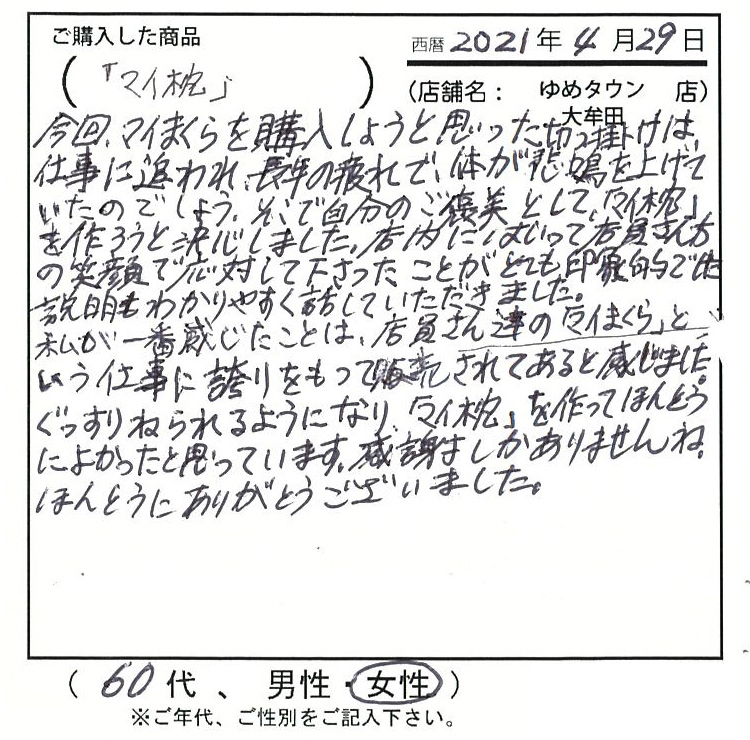 ご購入した商品
西暦 2021年 4月29日
(「マイ枕」)
(店舗名: ゆめタウン大牟田 店)
今回、マイまくらを購入しようと思った切っ掛けは、
仕事に追われ、長年の疲れで、体が悲鳴を上げて
いたのでしょう。そこで自分のご褒美として、「マイ枕」
を作ろうと決心しました。店内にはいって店員さん方
の笑顔で応対して下さったことがとても印象的でした
説明もわかりやすく話していただきました。
私が一番感じたことは、店員さん達の「マイまくら」と
いう仕事に誇りをもって販売されてあると感じました。
ぐっすりねられるようになり、「マイ枕」を作ってほんとう
によかったと思っています。感謝しかありませんね。
ほんとうにありがとうございました。
(60代、男性・女性)
※ご年代、ご性別をご記入下さい。